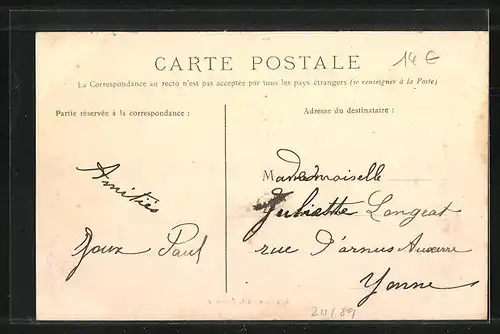 CARTE POSTALE
14 €
La Correspondance au recto n'est pas acceptée par tous les pays étrangers (se renseigner à la Poste)
Partie réservée à la correspondance :
Adresse du destinataire :
Mademoiselle
Amitiés
Juliette Longeat
Paul
rue Auxerre
Yonne
24/89